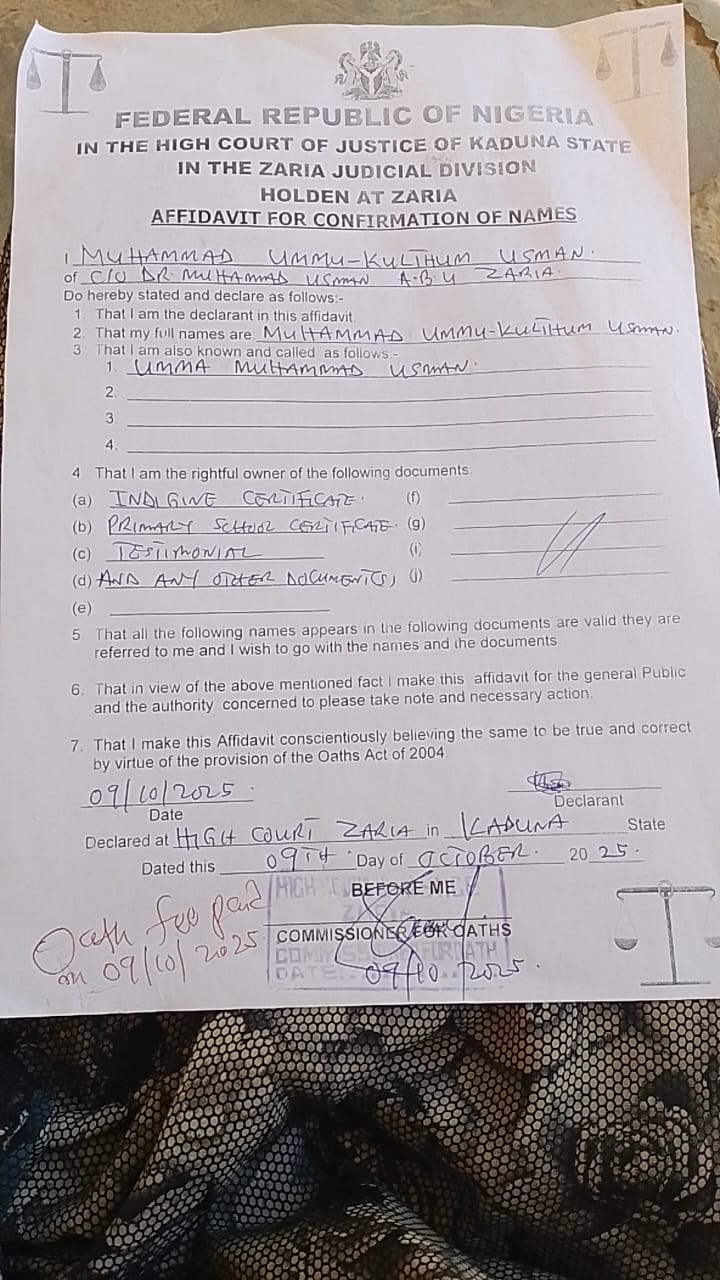 FEDERAL REPUBLIC OF NIGERIA
IN THE HIGH COURT OF JUSTICE OF KADUNA STATE
IN THE ZARIA JUDICIAL DIVISION
HOLDEN AT ZARIA
AFFIDAVIT FOR CONFIRMATION OF NAMES
I MUHAMMAD UMMU-KULTHUM USMAN.
of C/O DR. MUHAMMAD USMAN A.B.U ZARIA.
Do hereby stated and declare as follows:-
1. That I am the declarant in this affidavit.
2. That my full names are: MUHAMMAD UMMU-KULTHUM USMAN.
3. That I am also known and called as follows:-
1. UMMA MUHAMMAD USMAN.
2.
3
4.
4. That I am the rightful owner of the following documents
(a) INDIGINE CERTIFICATE. (f)
(b) PRIMARY SCHOOL CERTIFICATE. (g)
(c) TESTIMONIAL (i)
(d) AND ANY OTHER DOCUMENT(S) (j)
(e)
5. That all the following names appears in the following documents are valid they are
referred to me and I wish to go with the names and the documents
6. That in view of the above mentioned fact I make this affidavit for the general Public
and the authority concerned to please take note and necessary action.
7. That I make this Affidavit conscientiously believing the same to be true and correct
by virtue of the provision of the Oaths Act of 2004.
09/10/2025.
Date
Declarant
Declared at HIGH COURT ZARIA in KADUNA State
Dated this 09TH Day of OCTOBER. 20 25.
HIGH
BEFORE ME
Oath fee paid
on 09/10/2025
COMMISSIONER FOR OATHS
DATE
09/10/2025.